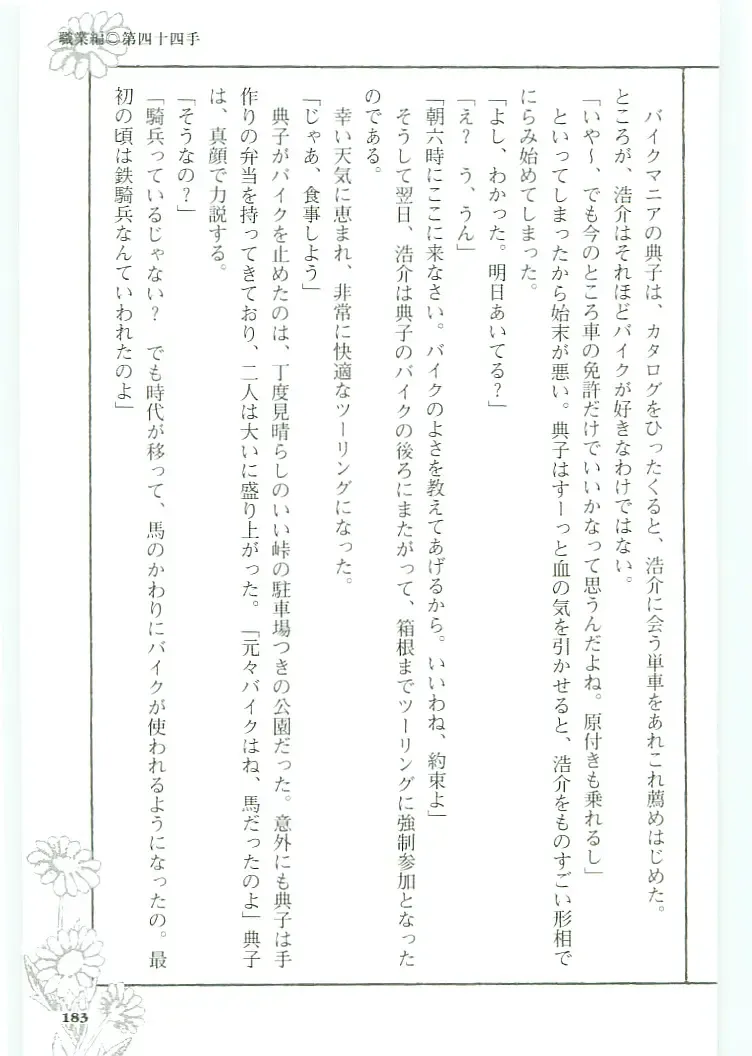 職業編◎第四十四手
バイクマニアの典子は、カタログをひったくると、浩介に会う単車をあれこれ薦めはじめた。
ところが、浩介はそれほどバイクが好きなわけではない。
「いや〜、でも今のところ車の免許だけでいいかなって思うんだよね。原付きも乗れるし」
といってしまったから始末が悪い。典子はすーっと血の気を引かせると、浩介をものすごい形相で
にらみ始めてしまった。
「よし、わかった。明日あいてる？」
「え？　う、うん」
「朝六時にここに来なさい。バイクのよさを教えてあげるから。いいわね、約束よ」
そうして翌日、浩介は典子のバイクの後ろにまたがって、箱根までツーリングに強制参加となった
のである。
幸い天気に恵まれ、非常に快適なツーリングになった。
「じゃあ、食事しよう」
典子がバイクを止めたのは、丁度見晴らしのいい峠の駐車場つきの公園だった。意外にも典子は手
作りの弁当を持ってきており、二人は大いに盛り上がった。「元々バイクはね、馬だったのよ」典子
は、真顔で力説する。
「そうなの？」
「騎兵っているじゃない？　でも時代が移って、馬のかわりにバイクが使われるようになったの。最
初の頃は鉄騎兵なんていわれたのよ」
183